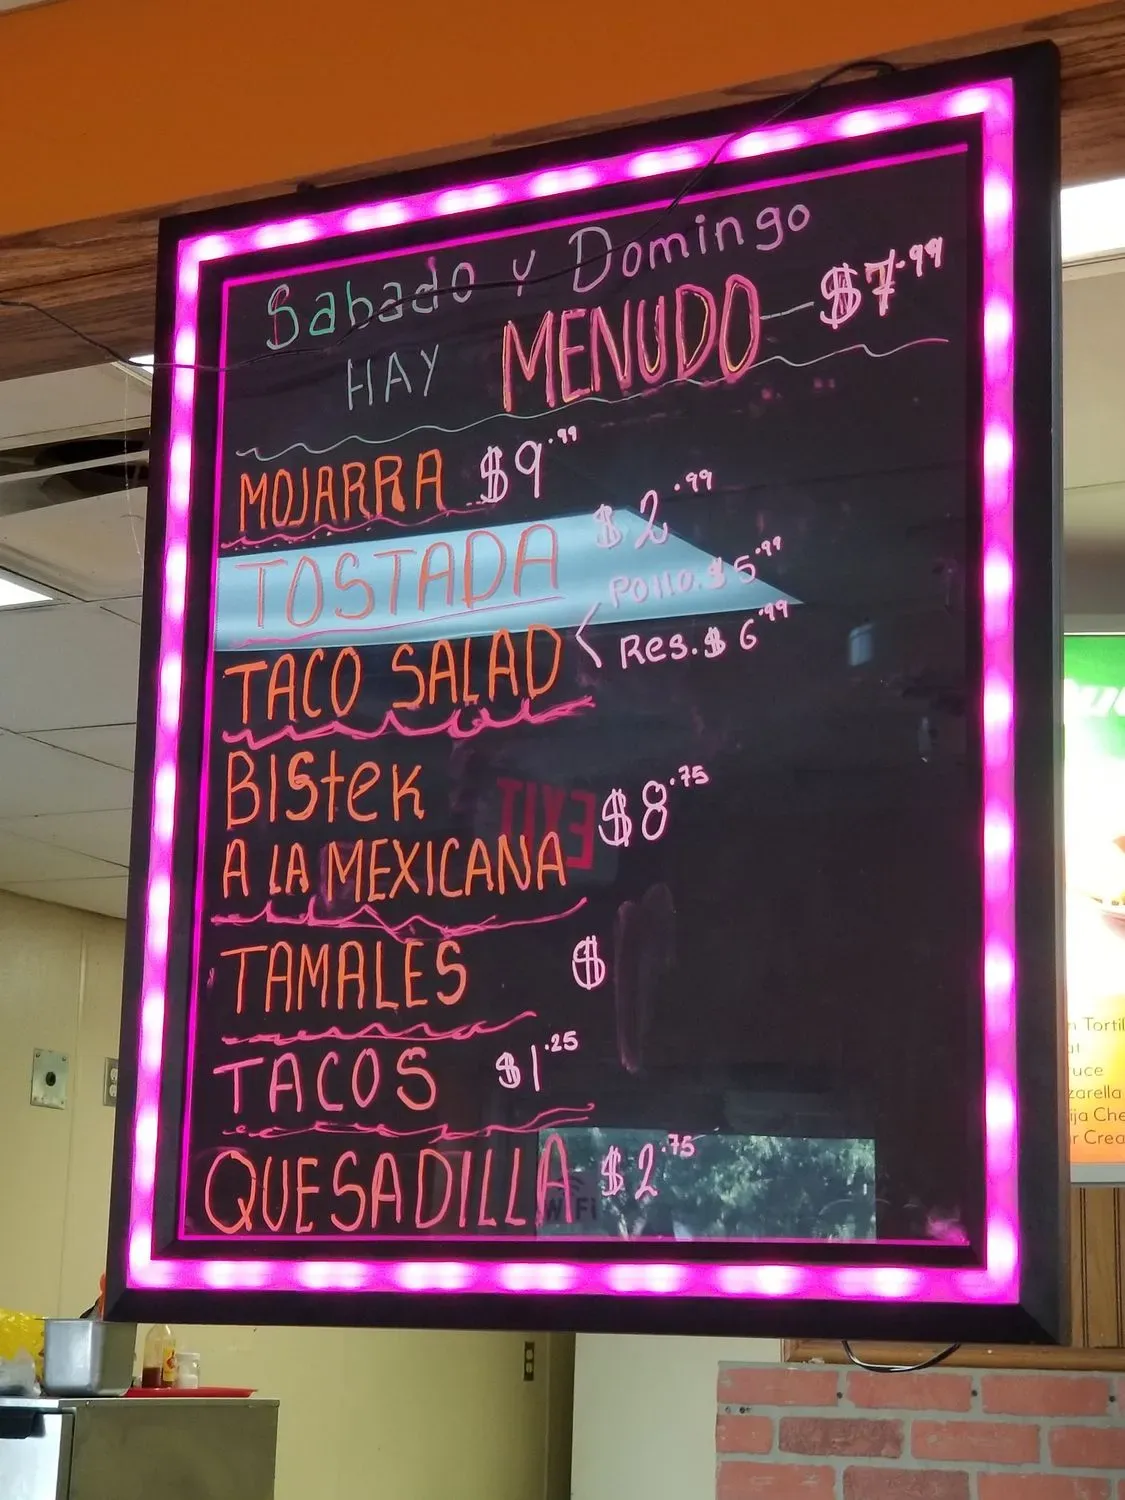 Sabado y Domingo
HAY MENUDO - $7.99
MOJARRA $9.99
TOSTADA $2.99
TACO SALAD < Pollo. $5.99
Res. $6.99
BIStek
A LA MEXICANA $8.75
TAMALES $
TACOS $1.25
QUESADILLA $2.75
EXIT
WiFi
Tortil
uce
zarella
ija Che
r Crea